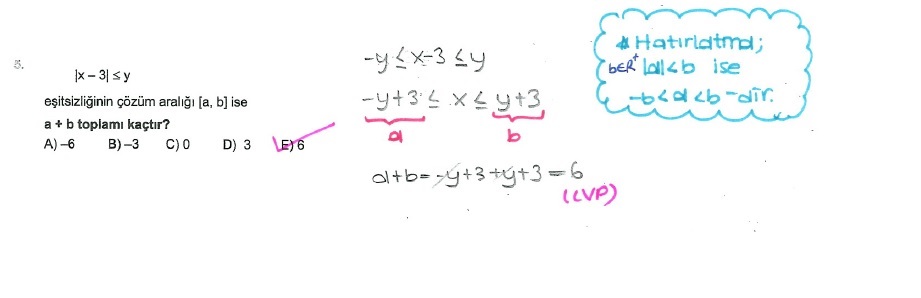 5.
|x – 3| ≤ y
eşitsizliğinin çözüm aralığı [a, b] ise
a + b toplamı kaçtır?
A) –6 B) –3 C) 0 D) 3 E) 6
-y ≤ x-3 ≤ y
-y+3 ≤ x ≤ y+3
a b
a+b = -y+3+y+3 = 6
(CVP)
* Hatırlatma;
b∈R⁺ |a|<b ise
-b<a<b -dir.